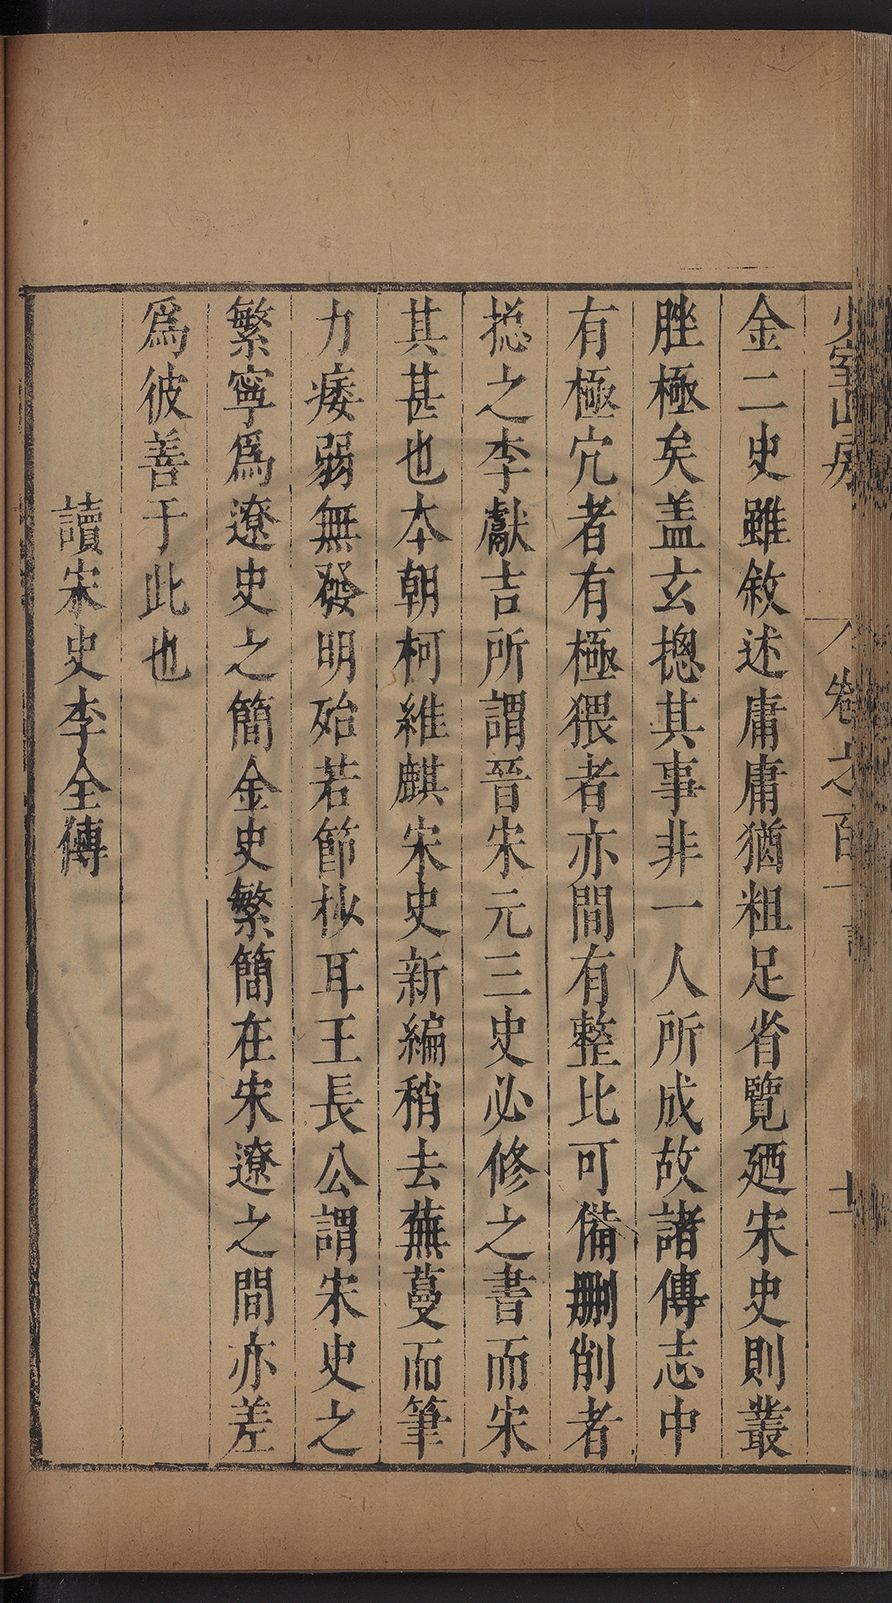 少室山房 卷之百一 十一
金二史雖敘述庸庸猶粗足省覽廼宋史則叢
脞極矣盖玄摠其事非一人所成故諸傳志中
有極冗者有極猥者亦間有整比可備刪削者
摠之李獻吉所謂晉宋元三史必修之書而宋
其甚也本朝柯維麒宋史新編稍去蕪蔓而筆
力痿弱無發明殆若節抄耳王長公謂宋史之
繁寧爲遼史之簡金史繁簡在宋遼之間亦差
爲彼善于此也
讀宋史李全傳